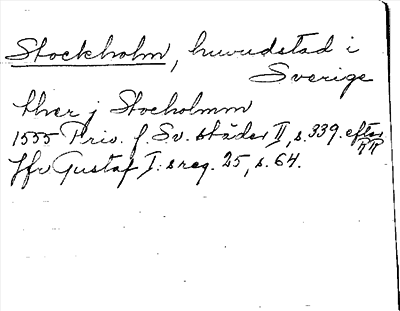 Stockholm, huvudstad i
Sverige
ther j Stocholmm
1555 Priv. f. Sv. städer II, s. 339. efter
Jfr Gustaf I:s reg. 25, s. 64.